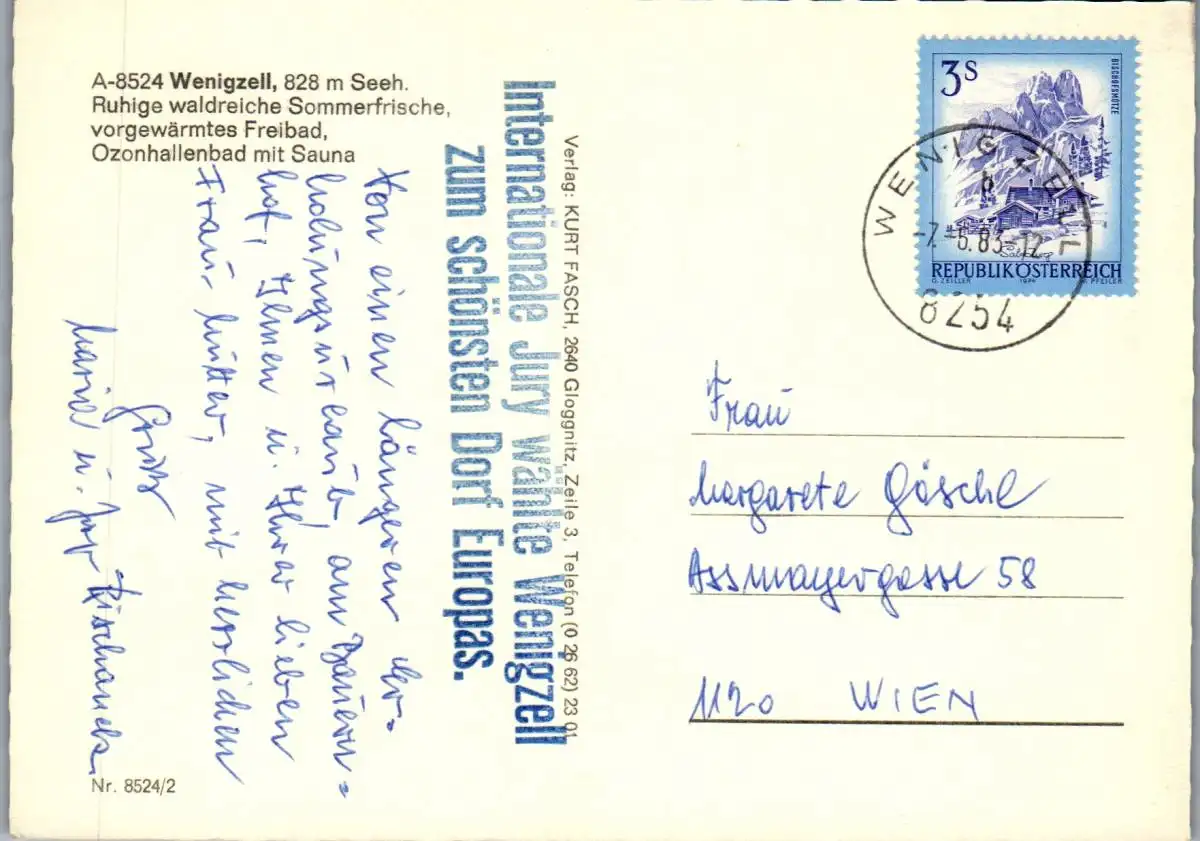 A-8524 Wenigzell, 828 m Seeh.
Ruhige waldreiche Sommerfrische,
vorgewärmtes Freibad,
Ozonhallenbad mit Sauna
Von einen längeren Er-
holungsurlaub, am Bauern-
hof, Ihnen u. Ihrer lieben
Frau Mutter, mit herzlichen
Grüße
Maria u.
Nr. 8524/2
Internationale Jury wählte Wenigzell
zum schönsten Dorf Europas.
Verlag: KURT FASCH, 2640 Gloggnitz, Zeile 3, Telefon (0 26 62) 23 01
3 S
BISCHOFSMÜTZE
Salzburg
REPUBLIK ÖSTERREICH
O. ZEILLER 1974 W. PFEILER
WENIGZELL
b
-7.-6.83-12
8254
Frau
Margarete Göschl
Assmayergasse 58
1120 WIEN